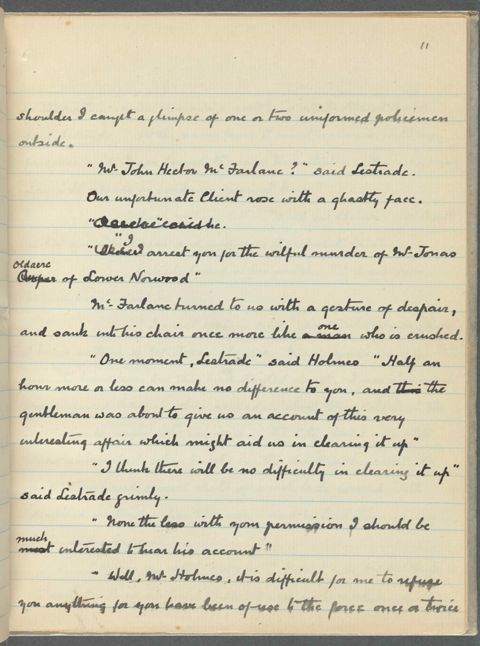 11
shoulder I caught a glimpse of one or two uniformed policemen
outside.
"Mr. John Hector McFarlane?" said Lestrade.
Our unfortunate Client rose with a ghastly face.
he.
"I arrest you for the wilful murder of Mr Jonas
Oldacre
of Lower Norwood"
McFarlane turned to us with a gesture of despair,
one
and sank into his chair once more like a man who is crushed.
"One moment, Lestrade" said Holmes "Half an
hour more or less can make no difference to you, and this the
gentleman was about to give us an account of this very
interesting affair which might aid us in clearing it up"
"I think there will be no difficulty in clearing it up"
said Lestrade grimly.
"None the less with your permission I should be
much
most interested to hear his account"
"Well, Mr Holmes, it is difficult for me to refuse
you anything for you have been of use to the force once or twice